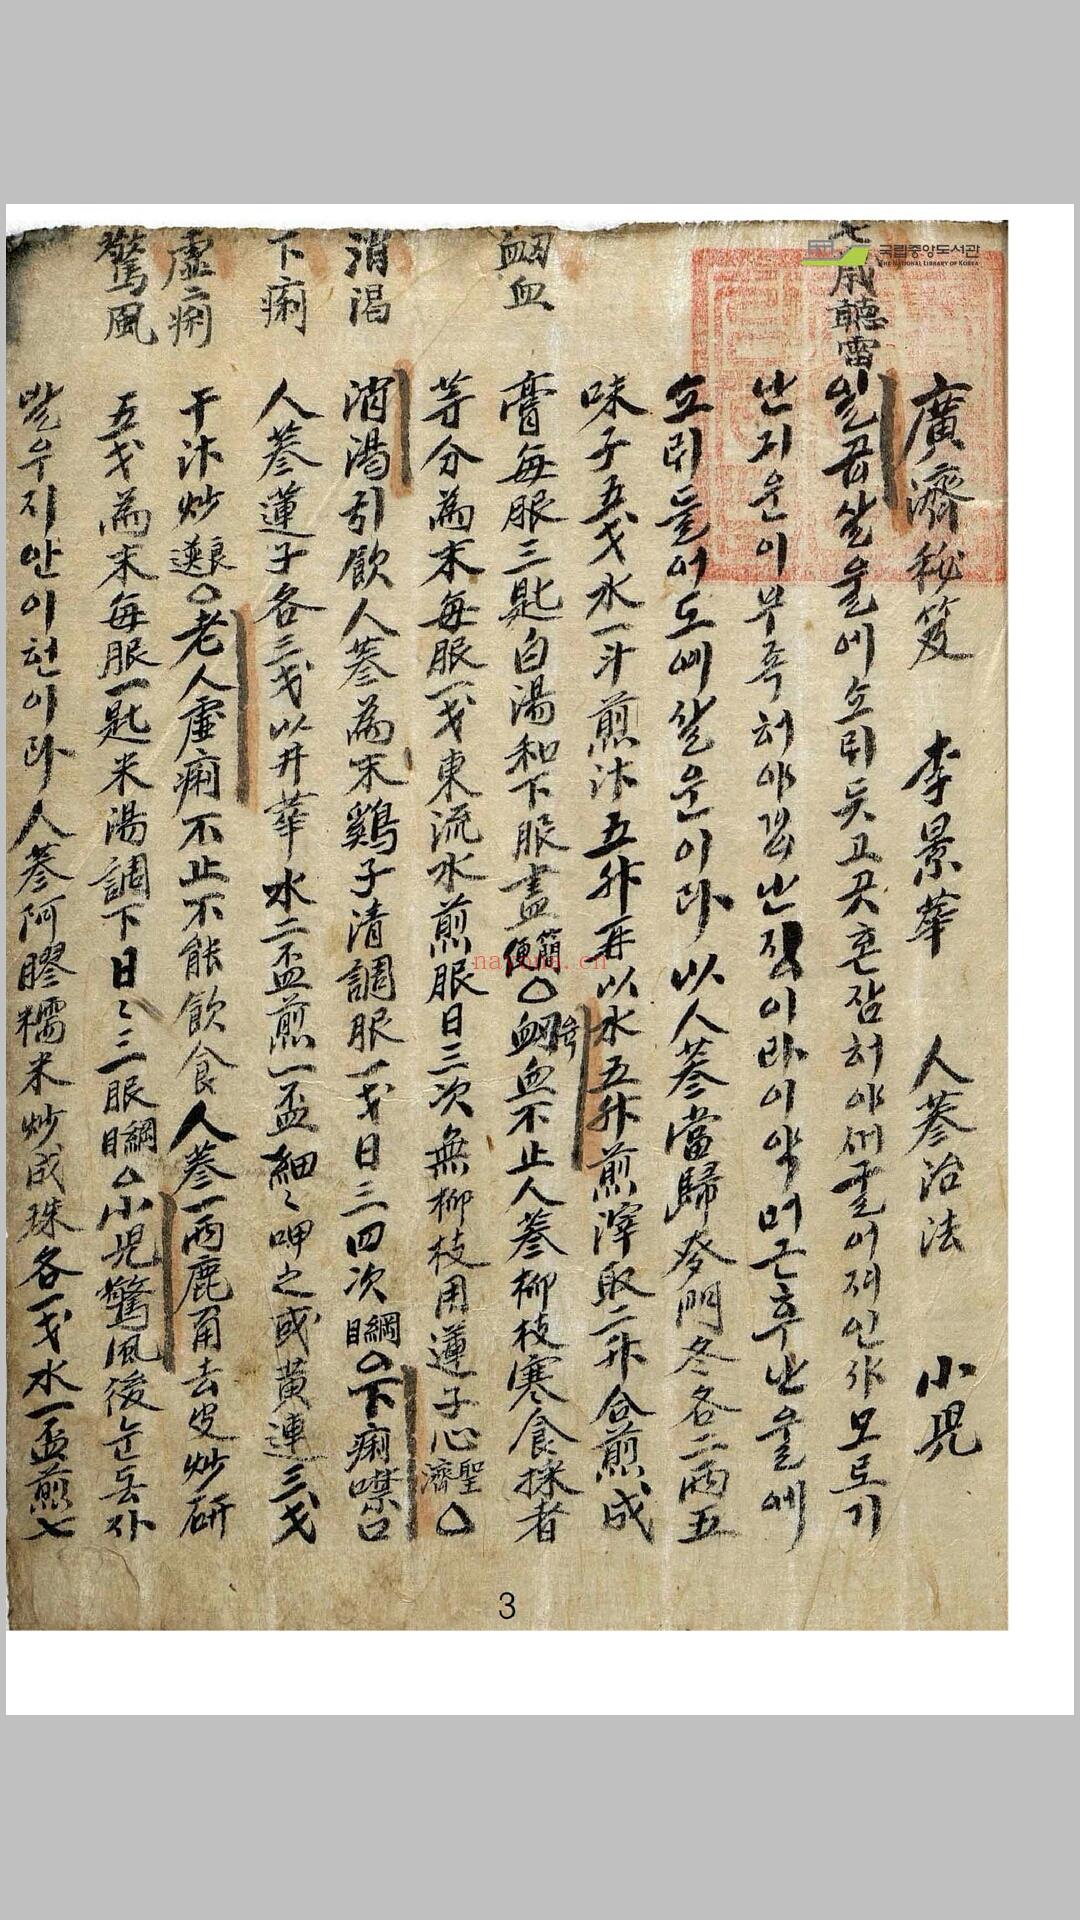 廣濟秘笈 李景華 人蔘治法 小児
七歲聽雷
일곱살울에소뤼듯고곳혼잠하야써러어져인사모로기
난지운이부족하야겁난정이라이약먹근후난울에
소뤼들어도예살운이라以人蔘當歸麥門冬各二兩五
味子五戔水一斗煎汁五升再以水五升煎滓取二升合煎成
衂血
膏每服三匙白湯和下服盡簡便○衂血不止人蔘柳枝寒食採者
等分為末每服一戔東流水煎服日三次無柳枝用蓮子心聖濟○
消渴
消渴引飮人蔘為末鷄子清調服一戔日三四次綱目○下痢噤口
下痢
人蔘蓮子各三戔以井華水二盃煎一盃細〻呷之或黃連三戔
虛痢
干汁炒 良 ○老人虛痢不止不能飮食人蔘一兩鹿角去皮炒研
驚風
五戔為末每服一匙米湯調下日〻三服綱目○小児驚風後눈동자
발우지안이헌이라人蔘阿膠糯米炒成珠各一戔水一盃煎七
국립중앙도서관
THE NATIONAL LIBRARY OF KOREA
nayona.cn
3